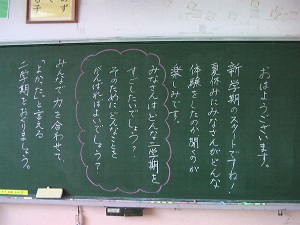 おはようございます。
新学期のスタートですね！
夏休みにみなさんがどんな
体験をしたのか聞くのが
楽しみです。
みなさんはどんな二学期を、
すごしたいでしょう？
そのためにどんなことを
がんばればよいでしょう？
みんなで力を合わせて、
「よかった」と言える
二学期をおくりましょう。